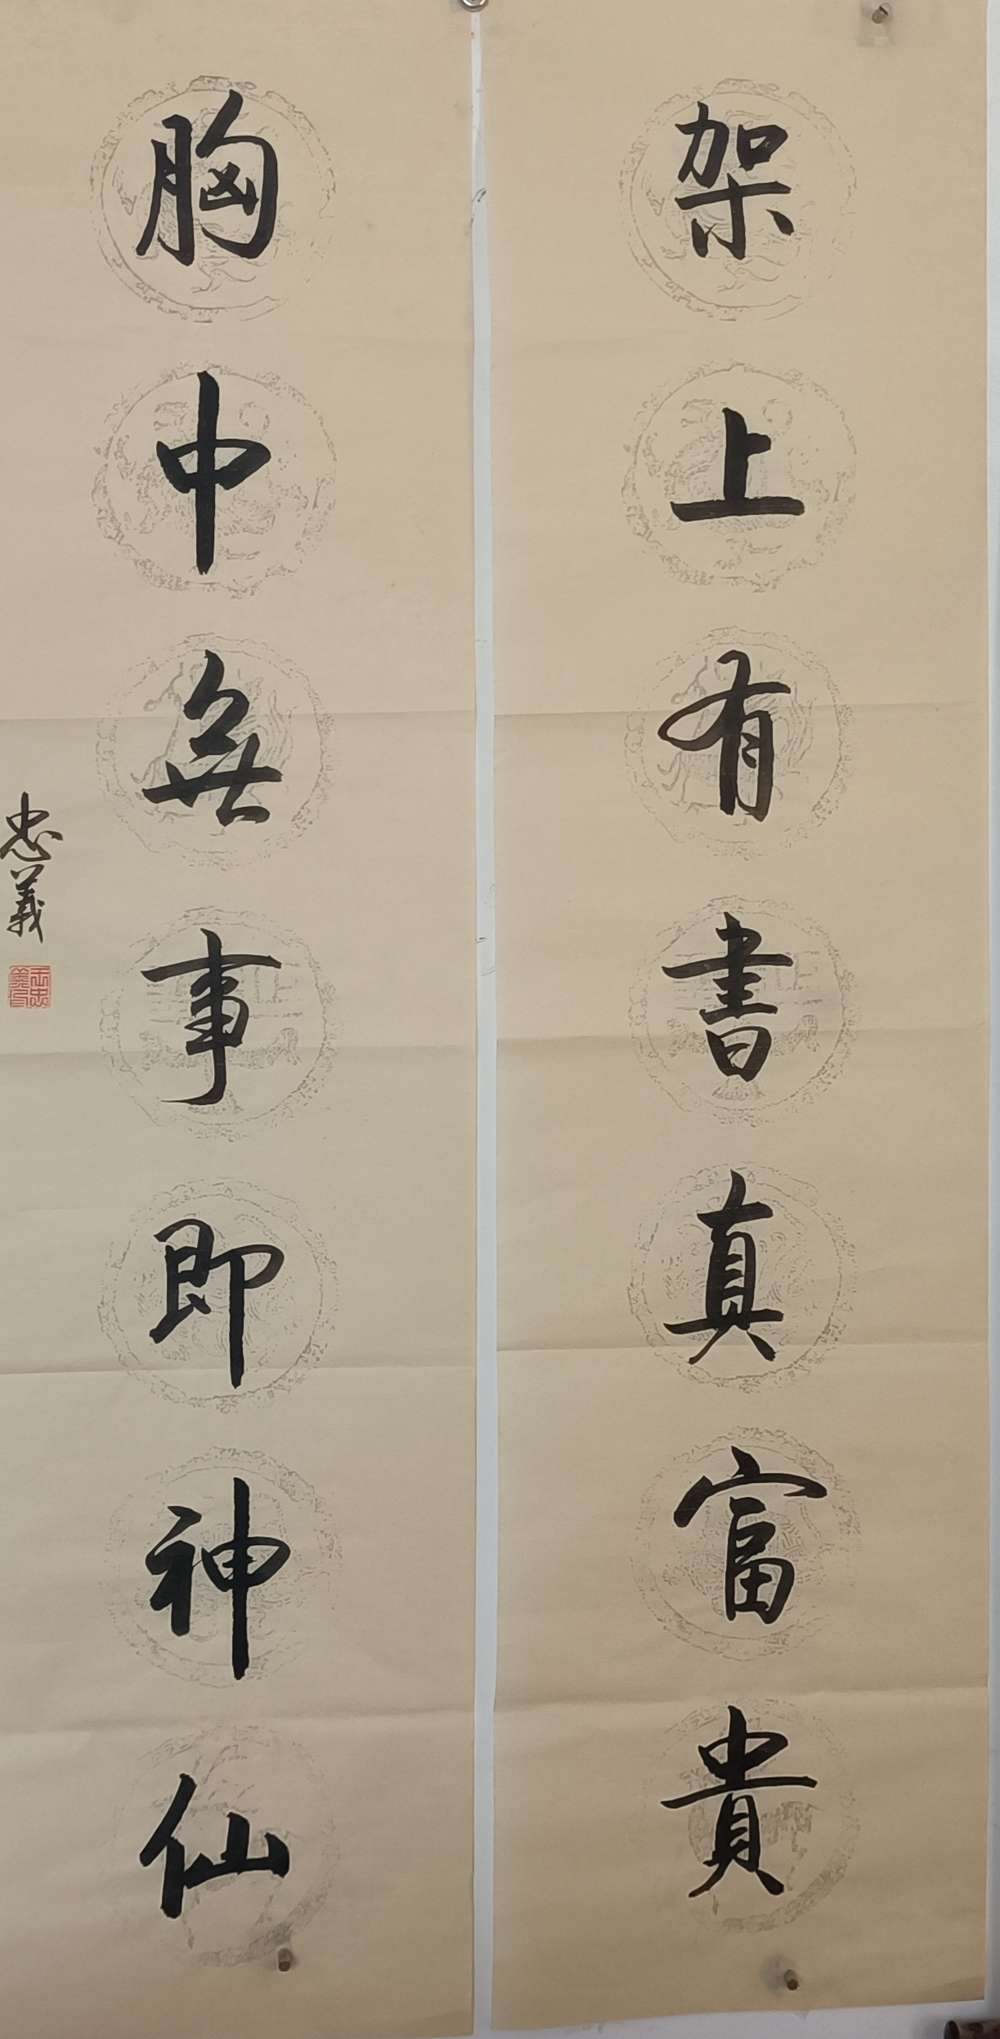 架上有書真富貴
胸中無事即神仙
忠義